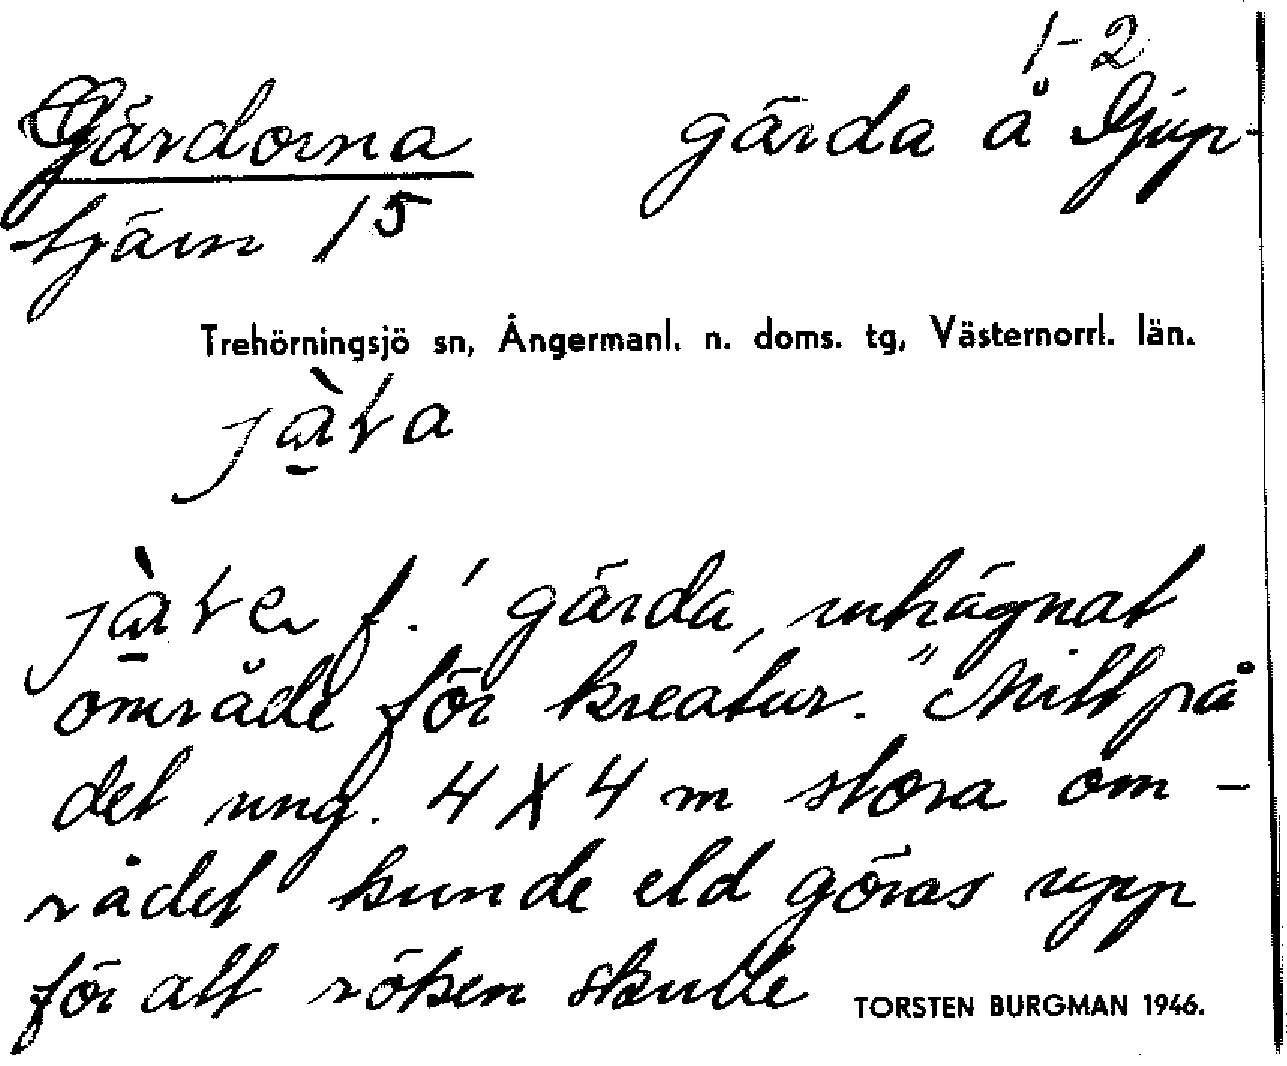 1-2
Gärdorna gärda å Djup-
tjärn 15
Trehörningsjö sn, Ångermanl. n. doms. tg, Västernorrl. län.
f. 'gärda, inhägnat
område för kreatur.' "Mitt på
det ung. 4 X 4 m stora om-
rådet kunde eld göras upp
för att röken skulle
TORSTEN BURGMAN 1946.